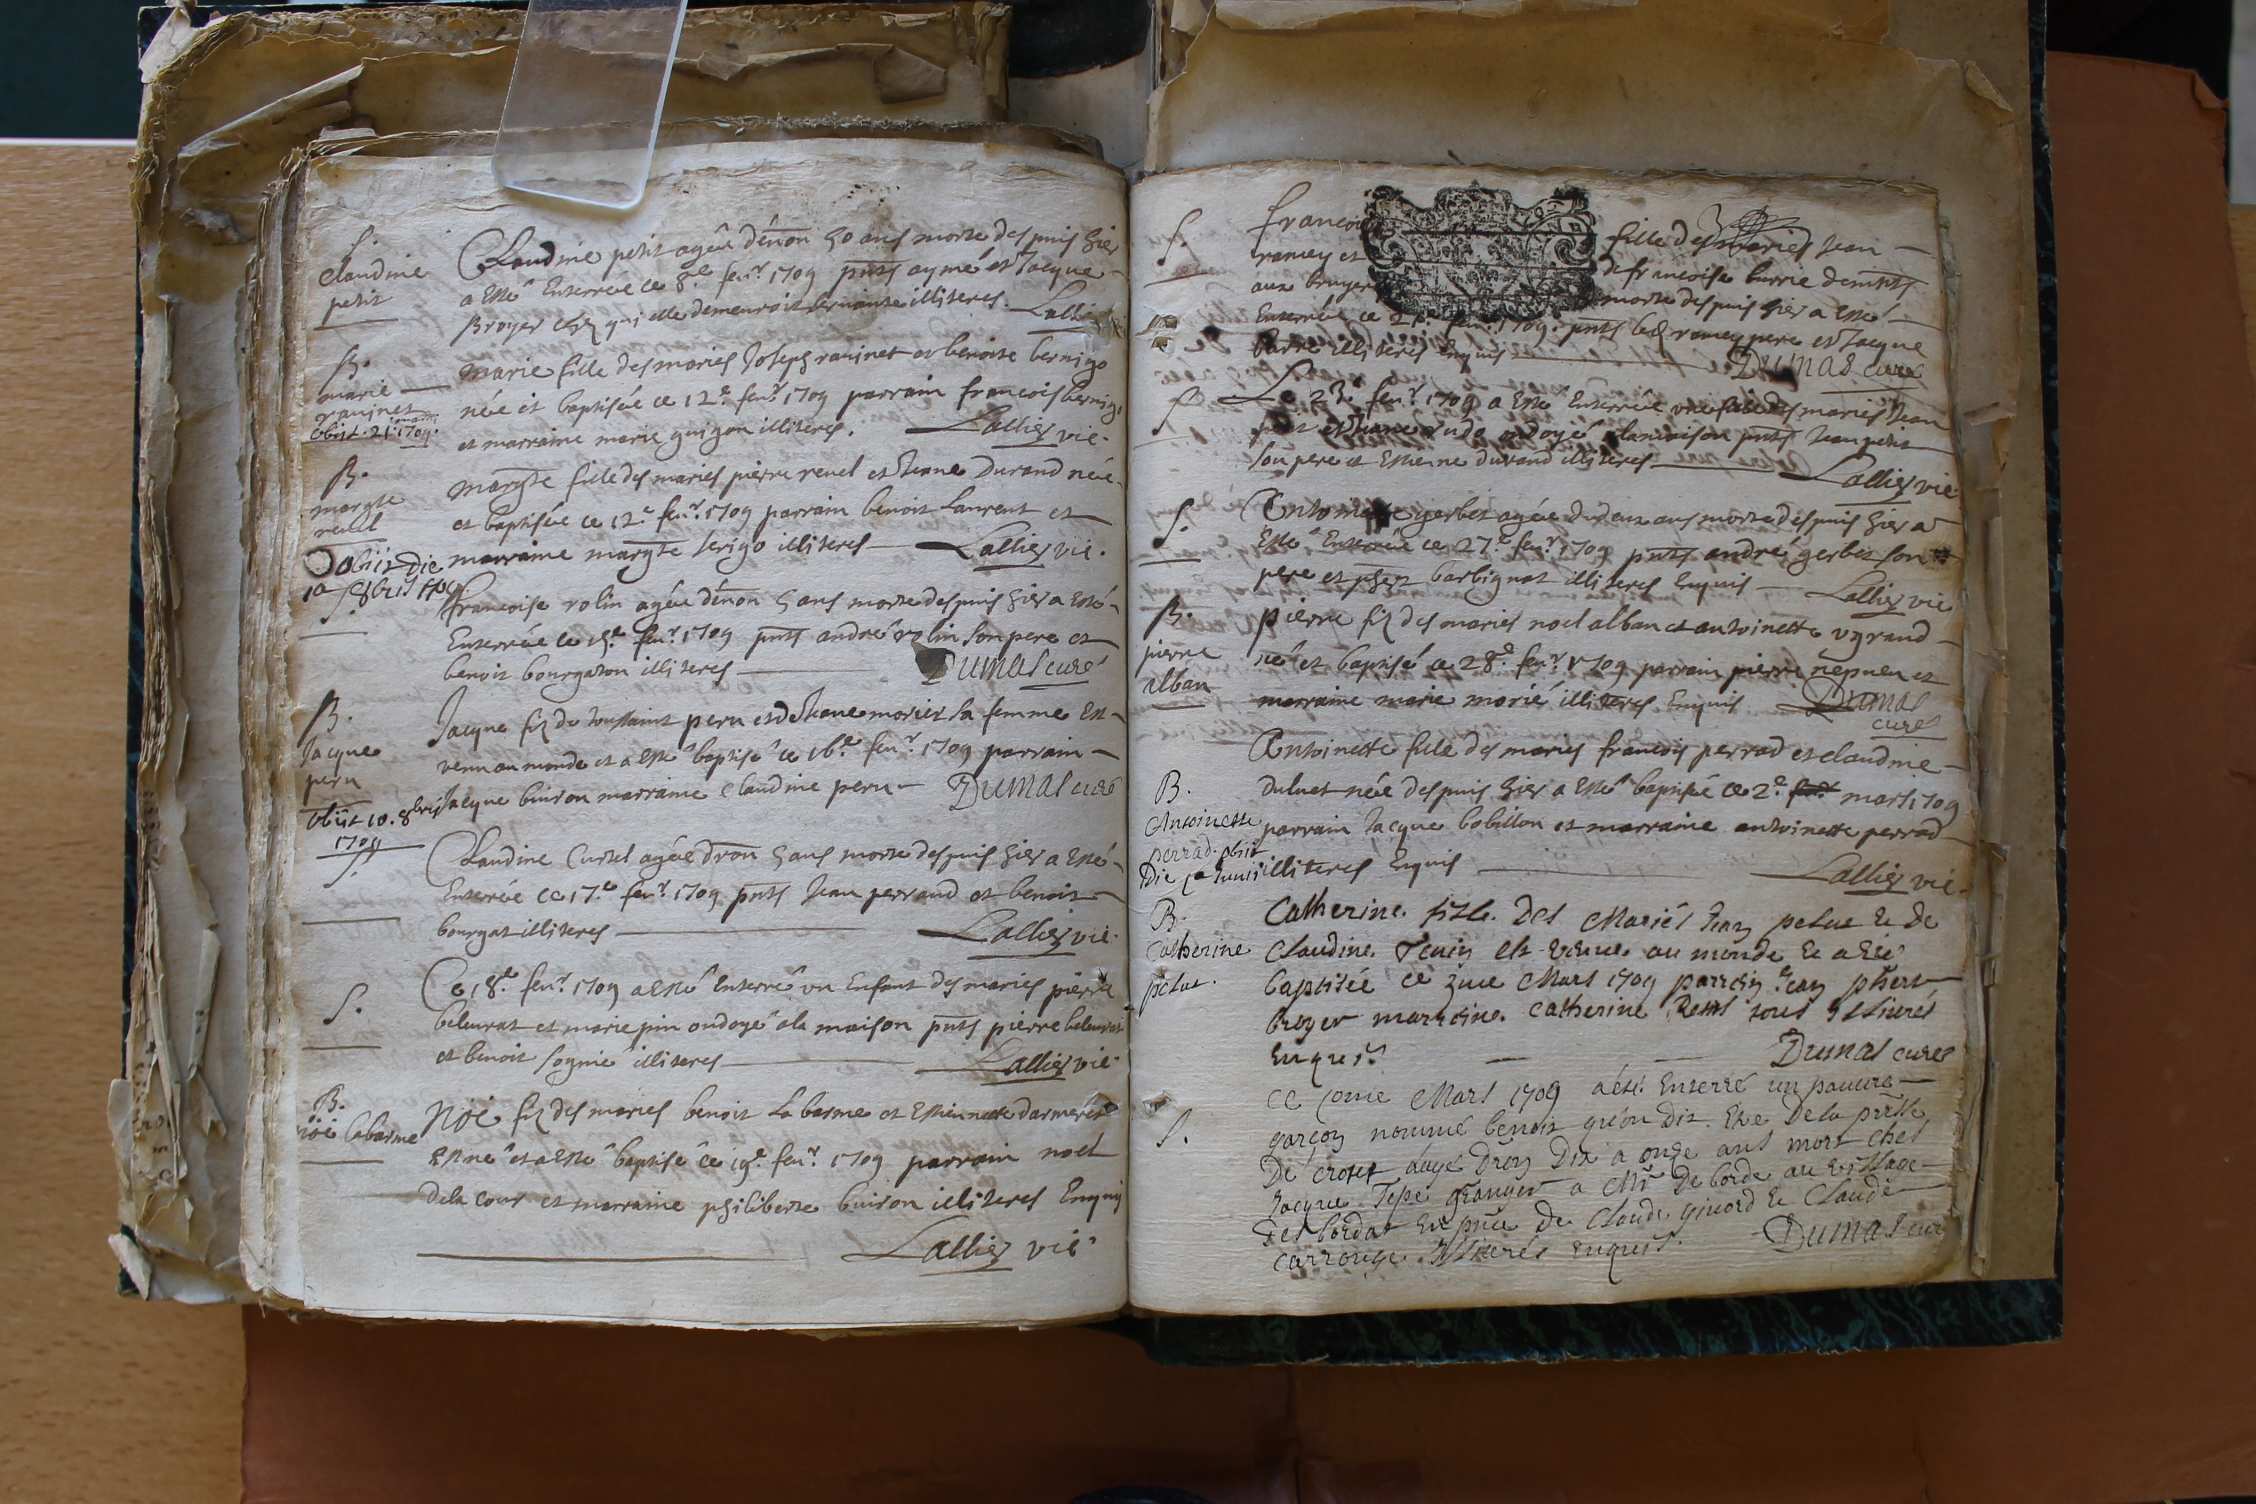 S.
Claudine
petit
Claudine petit agée dénon 50 ans morte despuis hier
a esté Enterrée ce 8.e feur. 1709 pnts aymé et Jacque
Broyer chez qui elle demeuroit servante illiteres. Lallier
B.
marie
ravinet
obiit. 21. marti 1709.
marie fille des mariés Joseph ravinet et benoite bernigo
née et baptisée ce 12.e feur. 1709 parrain francois bernigo
et marraine marie guigon illiteres. Lallier vic.
B.
margte
revel
obiit die
1a 7bris 1709
margte fille des mariés pierre revel et Jeane Durand née
et baptisée ce 12.e feur. 1709 parrain benoit Laurent et
marraine margte serigo illiteres Lallier vic.
S.
francoise rolin agée dénon 5 ans morte despuis hier a esté
Enterrée ce 15.e feur. 1709 pnts andré rolin son pere et
benoit bourgaton illiteres Dumas curé
B.
Jacque
peru
obiit 10. 8bris
1709
Jacque fiz de toussaint peru et de Jeane morier sa femme Est
venu au monde et a esté baptisé ce 16.e feur. 1709 parrain
Jacque buiron marraine Claudine peru Dumas curé
S.
Claudine Curtel agée dnon 5 ans morte despuis hier a esté
Enterrée ce 17.e feur. 1709 pnts Jean perrand et benoit
bourgat illiteres Lallier vic.
S.
Ce 18.e feur. 1709 a esté Enterré un Enfant des mariés pierre
beleurat et marie pin ondoyé a la maison pnts pierre beleurat
et benoit sognié illiteres Lallier vic.
B.
noé labarme
Noé fiz des mariés benoit labarme et Estiennette darmeret
Est né et a esté baptisé ce 19.e feur. 1709 parrain noel
dela cour et marraine philiberte buiron illiteres Enquis
Lallier vic.
S.
francoise fille des mariés Jean
ramey et de francoise barrie demts
aux bruyere morte despuis hier a esté
Enterrée ce 21.e feur. 1709. pnts ramey pere et Jacque
barrie illiteres Enquis Dumas curé
S.
Le 23.e feur. 1709 a esté Enterrée une fille des mariés Jean
petit et Jeane ondoyé a la maison pnts Jean petit
son pere et Estienne durand illiteres Lallier vic
S.
Antoinette gerbet agée de deux ans morte despuis hier a
Esté Enterrée ce 27.e feur. 1709 pnts andré gerbet son
pere et phbert barbignat illiteres Enquis Lallier vic
B.
pierre
alban
pierre fiz des mariés noel alban et antoinette vgrand
né et baptisé ce 28.e feur. 1709 parrain pierre nepueu et
marraine marie morié illiteres Enquis Dumas
curé
B.
Antoinette
perrad. obiit
Die 5a Junii
Antoinette fille des mariés francois perrad et claudine
duluat née despuis hier a esté baptisée ce 2.e mars 1709
parrain Jacque bobillon et marraine antoinette perrad
illiteres Enquis Lallier vic.
B.
Catherine
pelut.
Catherine. fille. Des Mariés Jean pelut & de
Claudine. Est venue au monde & a Eté
baptisée ce Mars 1709 parrein Jean phbert
broyer marreine. Catherine tous Illiterés
Enquis. Dumas curé
S.
Ce Mars 1709 a été Enterré un pauure
garçon nommé benoit qu'on dit Etre De la psse
De crotet âagé Dnon Dix a onze ans mort chés
Jacque granger a Mr De borde au village
Des bordat En pnce de Claude givord & Claude
carronge. Illiterés enquis. Dumas curé